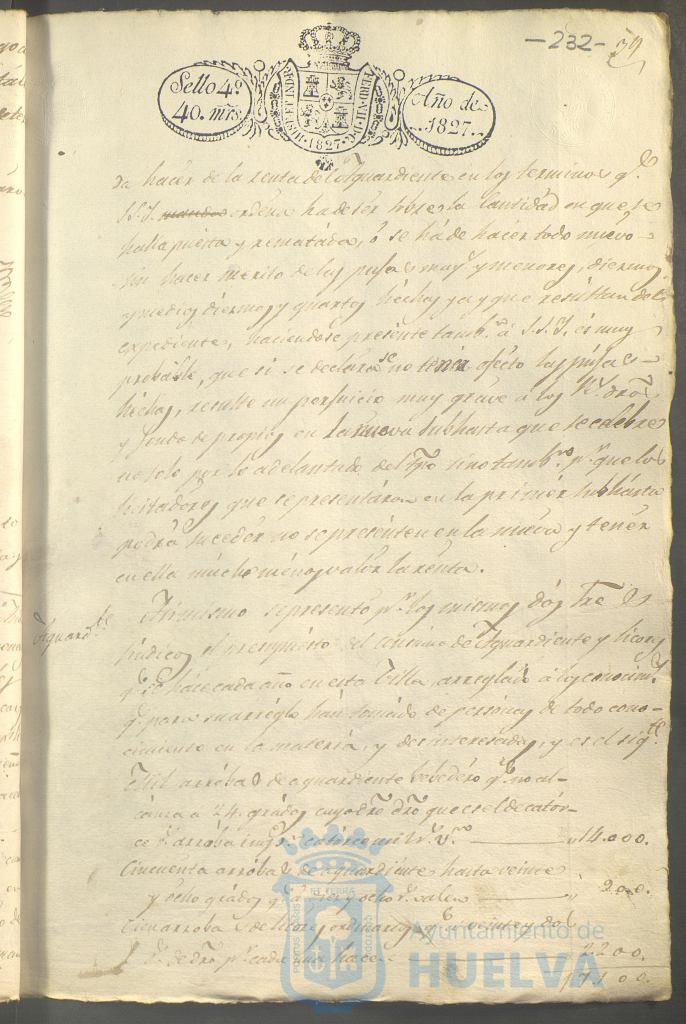 -232- 39
Sello 4º
40. mrs.
HISP. ET IND. R. FERD. VII. D. G. 1827.
Año de
1827.
da hacer de la renta de Aguardiente en los terminos qe.
S.S.Y. mandar ordena ha de ser sobre la Cantidad en que se
halla puesta y rematada, ó se há de hacer todo nuevo
sin hacer merito de las pujas y menores, diezmos,
y medios diezmos y quartos hechas ya y que resultan del
expediente, haciendose presente tambn. á S.S.Y. es muy
probable, que si se declara se no tener efecto las pujas
hechas, resulte un perjuicio muy grave á los Rs. dros.
y fondo de propios en la nueva subhasta que se celebre
no solo por lo adelantado del tpo. sino tambn. pr. que los
licitadores que se presentaron en la primer subhasta
podrá suceder no se presenten en la nueva y tener
en ella mucho menos valor la renta.
Aguardte.
Asimismo se presentó pr. los mismos dos Sres.
Sindicos el presupuesto del consumo de Aguardiente y licores
qe. se hace cada año en esta Villa, arreglado á los conocimtos.
qe. para su arreglo han tomado de personas de todo cono-
cimiento en la materia, y desinteresadas, y es el sigte.
Mil arrobas de aguardiente bebedero qe. no al-
canza a 24. grados cuyo dro. que es el de cator-
ce rs. arroba catorce mil rs. vn. 14.000.
Cincuenta arrobas de aguardiente hasta veinte
y ocho grados qe. á diez y ocho rs. valen 900.
Cien arrobas de licores ordinarios qe. á veinte y dos
rs. de dro. pr. cada una hacen 2200.
17.100.
Ayuntamiento de
HUELVA
PORTUS MARIS ET TERRAE CUSTODIA